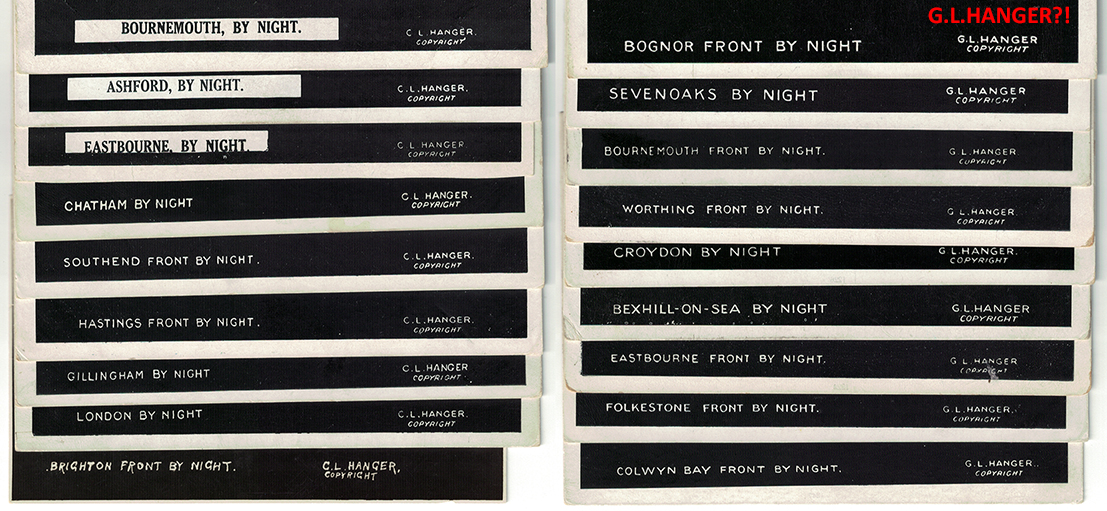 BOURNEMOUTH, BY NIGHT.
C L.HANGER.
COPYRIGHT
ASHFORD, BY NIGHT.
C.L.HANGER.
COPYRIGHT
EASTBOURNE, BY NIGHT.
C.L.HANGER
COPYRIGHT
CHATHAM BY NIGHT
C.L HANGER.
COPYRIGHT
SOUTHEND FRONT BY NIGHT.
C.L.HANGER.
COPYRIGHT
HASTINGS FRONT BY NIGHT.
C.L.HANGER.
COPYRIGHT
GILLINGHAM BY NIGHT
C.L.HANGER
COPYRIGHT
LONDON BY NIGHT
C.L.HANGER.
COPYRIGHT
.BRIGHTON FRONT BY NIGHT.
C.L.HANGER,
COPYRIGHT
G.L.HANGER?!
BOGNOR FRONT BY NIGHT
G.L.HANGER
COPYRIGHT
SEVENOAKS BY NIGHT
G.L.HANGER
COPYRIGHT
BOURNEMOUTH FRONT BY NIGHT.
G.L.HANGER.
COPYRIGHT
WORTHING FRONT BY NIGHT.
G L.HANGER.
COPYRIGHT
CROYDON BY NIGHT
G L.HANGER.
COPYRIGHT
BEXHILL-ON-SEA BY NIGHT
G.L.HANGER
COPYRIGHT
EASTBOURNE FRONT BY NIGHT.
G L.HANGER
COPYRIGHT
FOLKESTONE FRONT BY NIGHT.
G.L.HANGER.
COPYRIGHT
COLWYN BAY FRONT BY NIGHT.
G.L.HANGER..
COPYRIGHT